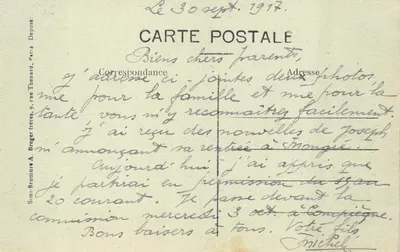 Le 30 sept. 1917.
CARTE POSTALE
Biens chers parents,
Correspondance
Adresse
J'adresse ci-jointes deux photos,
une pour la famille et une pour la
tante, vous m'y reconnaîtrez facilement.
J'ai reçu des nouvelles de Joseph
m'annonçant sa rentrée à
Aujourd'hui j'ai appris que
je partirai en permission du
20 courant. Je passe devant la
commission mercredi 3 oct. à Compiègne.
Bons baisers à tous. Votre fils
Michel